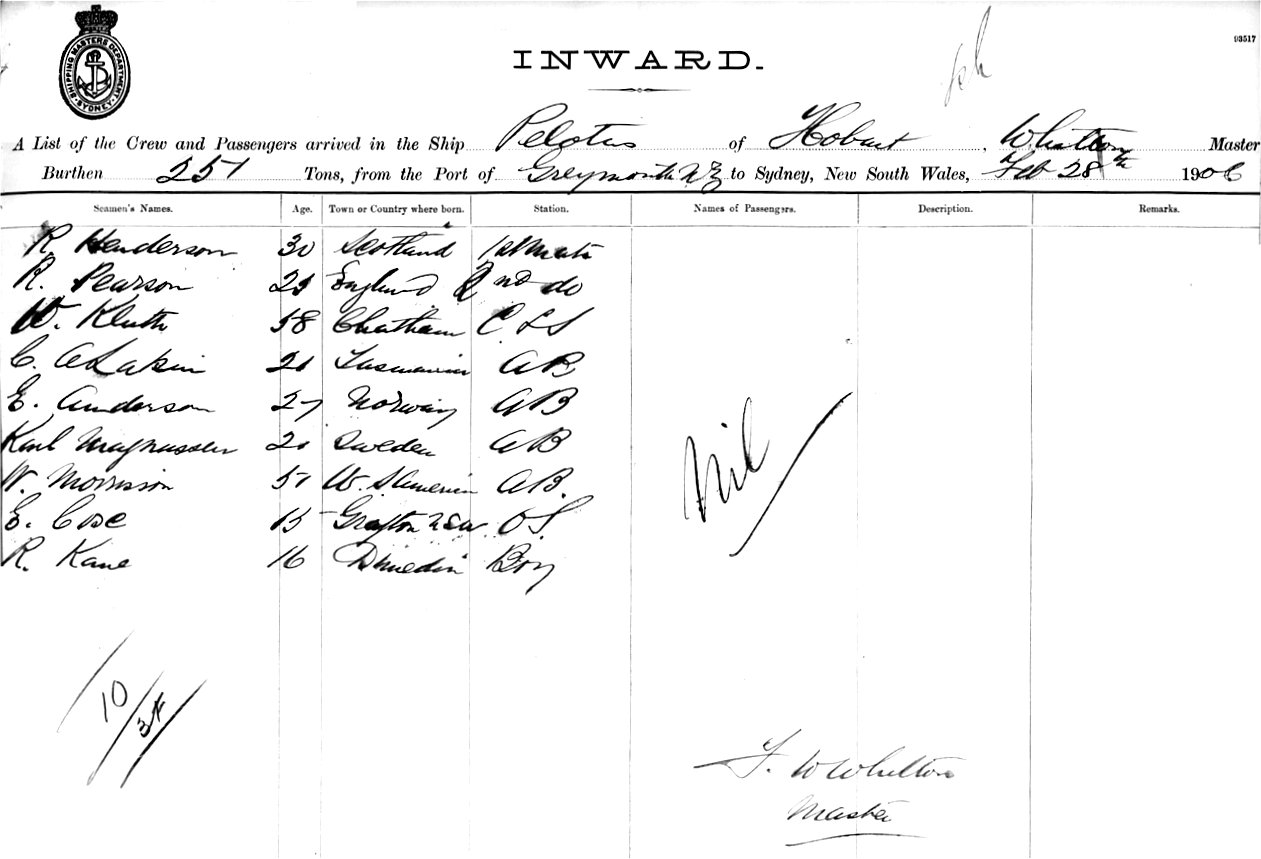 93517
SHIPPING MASTERS DEPARTMENT SYDNEY
INWARD.
A List of the Crew and Passengers arrived in the Ship Pelotas of Hobart, Whitton Master
Burthen 251 Tons, from the Port of Greymouth NZ to Sydney, New South Wales, Feb 28th 1906
Seamen's Names. Age. Town or Country where born. Station. Names of Passengers. Description. Remarks.
R. Henderson 30 Scotland 1st Mate
R. Pearson England 2nd do
W. Kluth 58 Chatham C & S
C. A Lakin 21 Tasmania AB
E. Anderson 27 Norway AB
Karl Magnussen 21 Sweden AB
W. Morrison 51 W. S America AB.
E. 15 Grafton NSW OS.
R. Kane 16 Dunedin Boy
Nil
10
F. W Whitton
Master